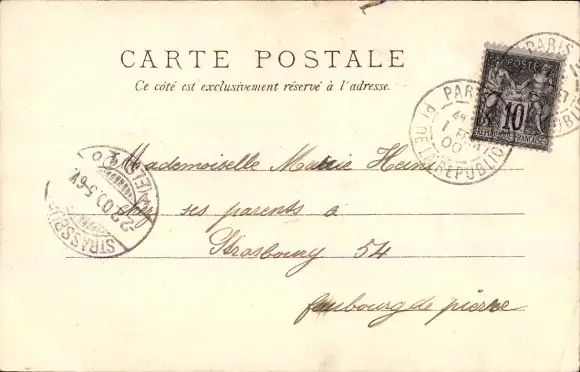 CARTE POSTALE
Ce côté est exclusivement réservé à l'adresse.
POSTE
10
REPUBLIQUE FRANÇAISE
PARIS
1
00
PL DE LA REPUBLIQUE
PARIS
Mademoiselle Marie Heim
chez ses parents à
Strasbourg 54
faubourg de pierre
STRASSBURG
2.2.00.5-6V